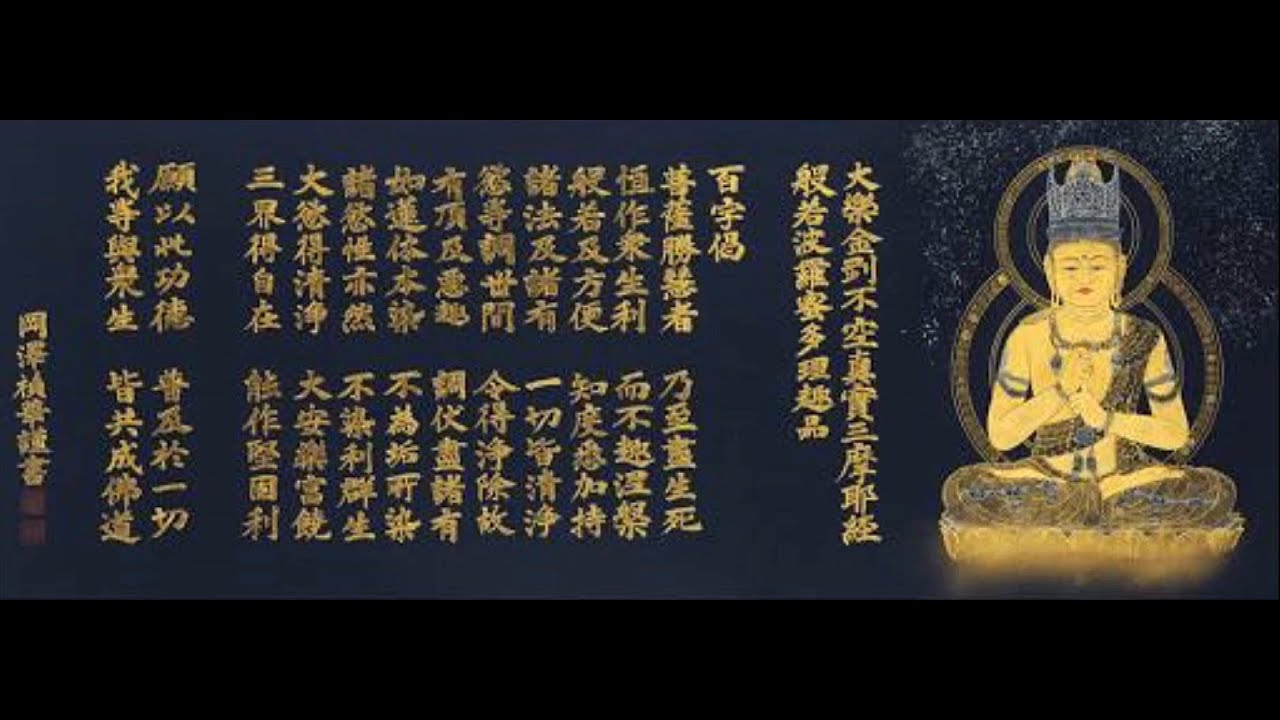 大樂金剛不空真實三摩耶經
般若波羅蜜多理趣品
百字偈
菩薩勝慧者　乃至盡生死
恒作衆生利　而不趣涅槃
般若及方便　知度悉加持
諸法及諸有　一切皆清浄
慾等調世間　令得浄除故
有頂及悪趣　調伏盡諸有
如蓮体本染　不為垢所染
諸慾性亦然　不染利群生
大慾得清浄　大安樂富饒
三界得自在　能作堅固利
願以此功徳　普及於一切
我等與衆生　皆共成佛道
岡澤禎華謹書